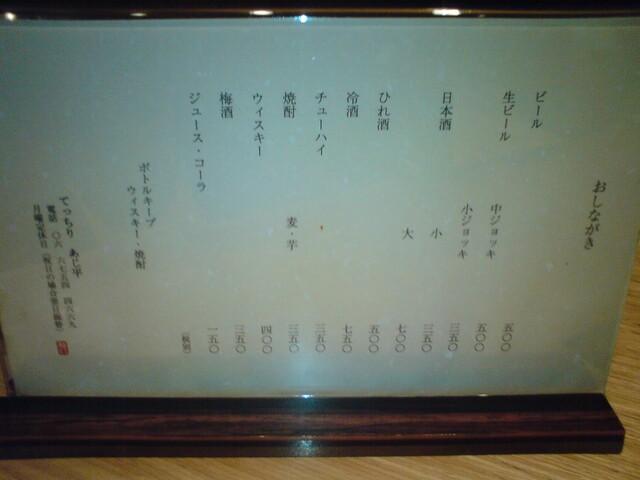 おしながき
ビール 五〇〇
生ビール 中ジョッキ 五〇〇
小ジョッキ 三五〇
日本酒 小 三五〇
大 七〇〇
ひれ酒 五〇〇
冷酒 七五〇
チューハイ 三五〇
焼酎 麦・芋 三五〇
ウィスキー 四〇〇
梅酒 三五〇
ジュース・コーラ 一五〇
(税別)
ボトルキープ
ウィスキー・焼酎
てっちり あじ平
電話 〇六 六七五四 四六六九
月曜定休日(祝日の場合翌日振替)